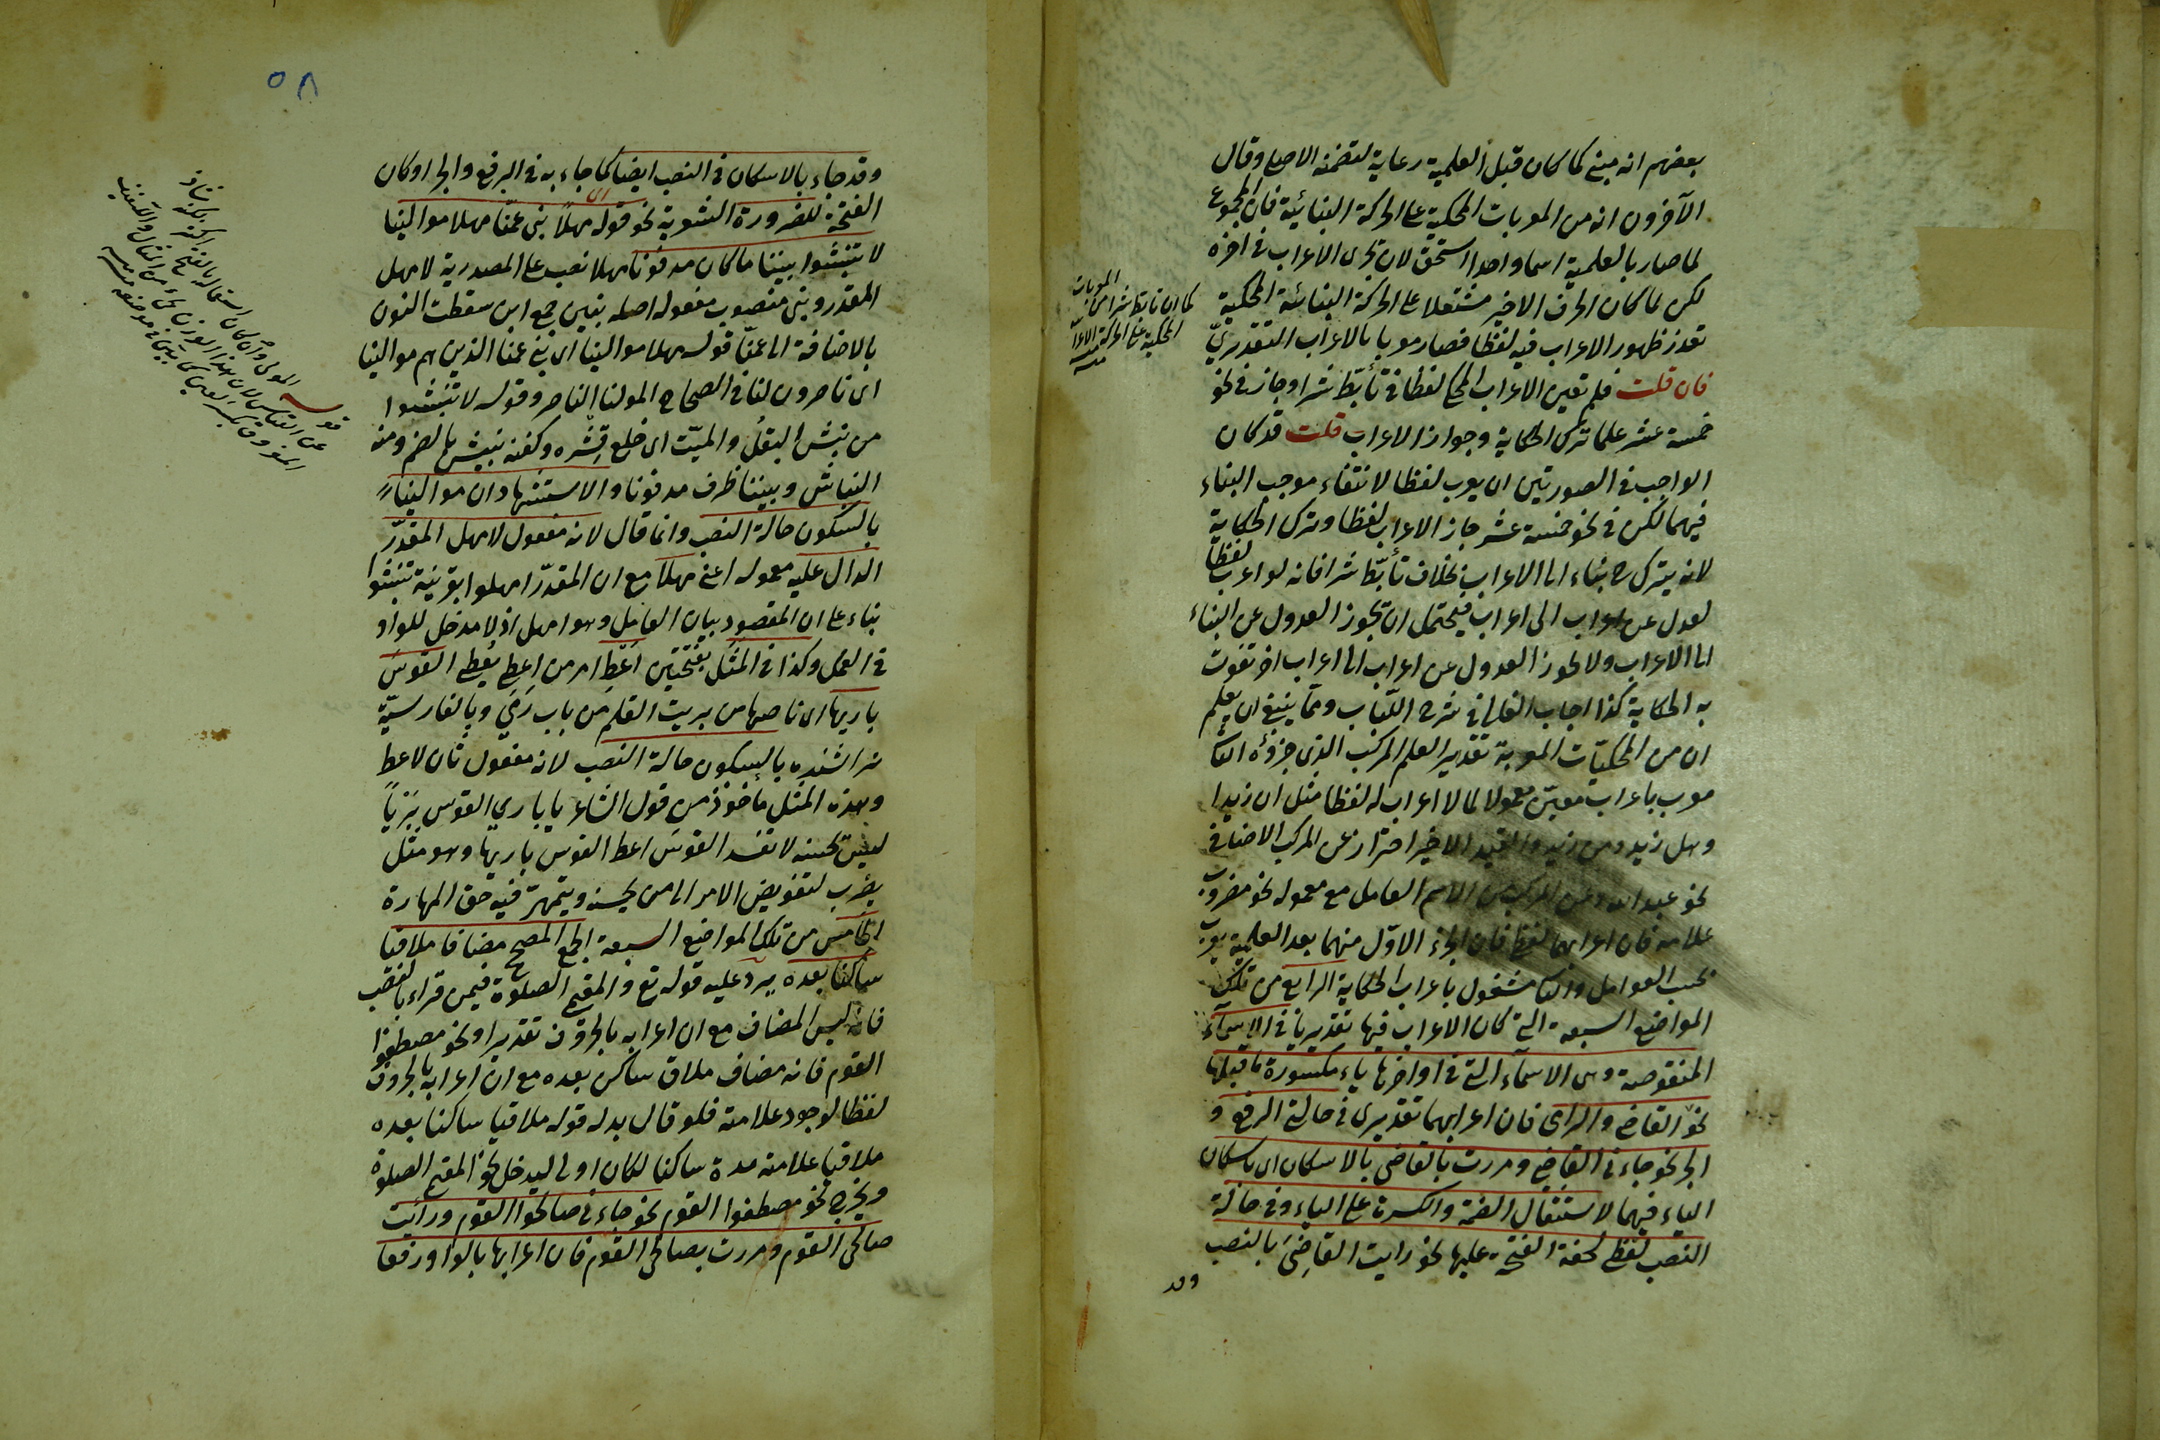 بعضهم انه مبنى كما كان قبل العلمية رعاية لتضمنه الاصلى وقال
الآخرون انه من المعربات المحكية على الحركة البنائية فان المجموع
لما صار بالعلمية اسما واحدا استحق لان تجرى الاعراب فى اخره
لكن لما كان الحرف الاخير مشتغلا على الحركة البنائية المحكية
تعذر ظهور الاعراب فيه لفظا فصار معربا بالاعراب التقديرىّ
فان قلت فلم تعين الاعراب المحكى لفظا فى تأبّط شرا وجاز فى نحو
خمسة عشر علما ترك الحكاية وجواز الاعراب قلت قد كان
الواجب فى الصورتين ان يعرب لفظا لانتفاء موجب البناء
فيهما لكن فى نحو خمسة عشر جاز الاعراب لفظا وترك الحكاية
لانه يترك ح بناء الى الاعراب بخلاف تأبّط شرا فانه لو اعرب لفظا
لعدل عن اعراب الى اعراب فيحتمل ان يجوز العدول عن البناء
الى الاعراب ولا يجوز العدول عن اعراب الى اعراب اخر تفوت
به الحكاية كذا اجاب الفالى فى شرح اللباب ومما ينبغى ان يعلم
ان من المحكيّات المعربة تقديرا العلم المركب الذى جزؤه الثانى
معرب باعراب معيّن معمولا لما لا اعراب له لفظا مثل ان زيدا
وهل زيد ومن زيد والقيد الاخير احتراز عن المركب الاضافى
نحو عبد الله وعن المركب من الاسم العامل مع معموله نحو مضروب
غلامه فان اعرابهما لفظى فان الجزء الاوّل منهما بعد العلمية يعرب
بحسب العوامل والثانى مشغول باعراب الحكاية الرابع من تلك
المواضع السبعة التى كان الاعراب فيها تقديريا فى الاسمآء
المنقوصة وهى الاسمآء التى فى اواخرها ياء مكسورة ما قبلها
نحو القاضى والرامى فان اعرابهما تقديرى فى حالة الرفع و
الجر نحو جاءنى القاضى ومررت بالقاضى بالاسكان اى باسكان
الياء فيهما لاستثقال الضمة والكسرة على الياء وفى حالة
النصب لفظى لخفة الفتحة عليها نحو رايت القاضىَ بالنصب
وقد
المعربات
كما ان تابط شرا من
المحكية على الحركة الاعرا
منه
٥٨
وقد جاء بالاسكان فى النصب ايضا كما جاء به فى الرفع والجر او كان
الفتحة للضرورة الشعرية نحو قوله مهلاً بنى عمّنا مهلا موالينا
لا تنبشوا بيننا ما كان مدفونا مهلا نصب على المصدرية لامهل
المقدر وبنى منصوب مفعوله اصله بنين جمع ابن سقطت النون
بالاضافة الى عمّنا قوله مهلا موالينا اى بنى عمنا الذين هم موالينا
اى ناصرون لنا فى الصحاح المولى الناصر وقوله لا تنبشوا
من نبش البقل والميّت اى خلع قِشره وكفنه ينبش بالضم ومنه
النباش وبيننا ظرف مدفونا والاستشهاد ان موالينا
بالسكون حالة النصب وانما قال لانه مفعول لامهل المقدّر
الدال عليه معموله اعنى مهلا مع ان المقدّر امهلوا بقرينة تنبشوا
بناء على ان المقصود بيان العامل وهو امهل اذ لا مدخل للواو
فى العمل وكذا فى المثل بفتحتين اَعطِ امر من اعطى يعطى القوسَ
باريها اى ناصبها من بريت القلم من باب رَمَى وبالفارسيّة
تراشنده بالسكون حالة النصب لانه مفعول ثان لاعط
وهذه المثل ماخوذ من قول الشاعر يا بارى القوس بَرْياً
ليس تحسنه لا تفسد القوسَ اعط القوس باريها وهو مثل
يضرب لتفويض الامر الى من يحسنه ويتمهّر فيه حق المهارة
الخامس من تلك المواضع السبعة الجمع المصحح مضافا ملاقيا
ساكنا بعده يرد عليه قوله تع والمقيمى الصلوة فيمن قراء بالنصب
فانه ليس المضاف مع ان اعرابه بالحروف تقديرا ونحو مصطفوا
القوم فانه مضاف ملاق ساكن بعده مع ان اعرابه بالحروف
لفظا لوجود علامته فلو قال بدل قوله ملاقيا ساكنا بعده
ملاقيا علامته مدة ساكنا لكان اولى ليدخل نحو المقيمى الصلوة
ويخرج نحو مصطفوا القوم نحو جاءنى صالحوا القوم ورأيت
صالحى القوم ومررت بصالحى القوم فان اعرابها بالواو رفعا